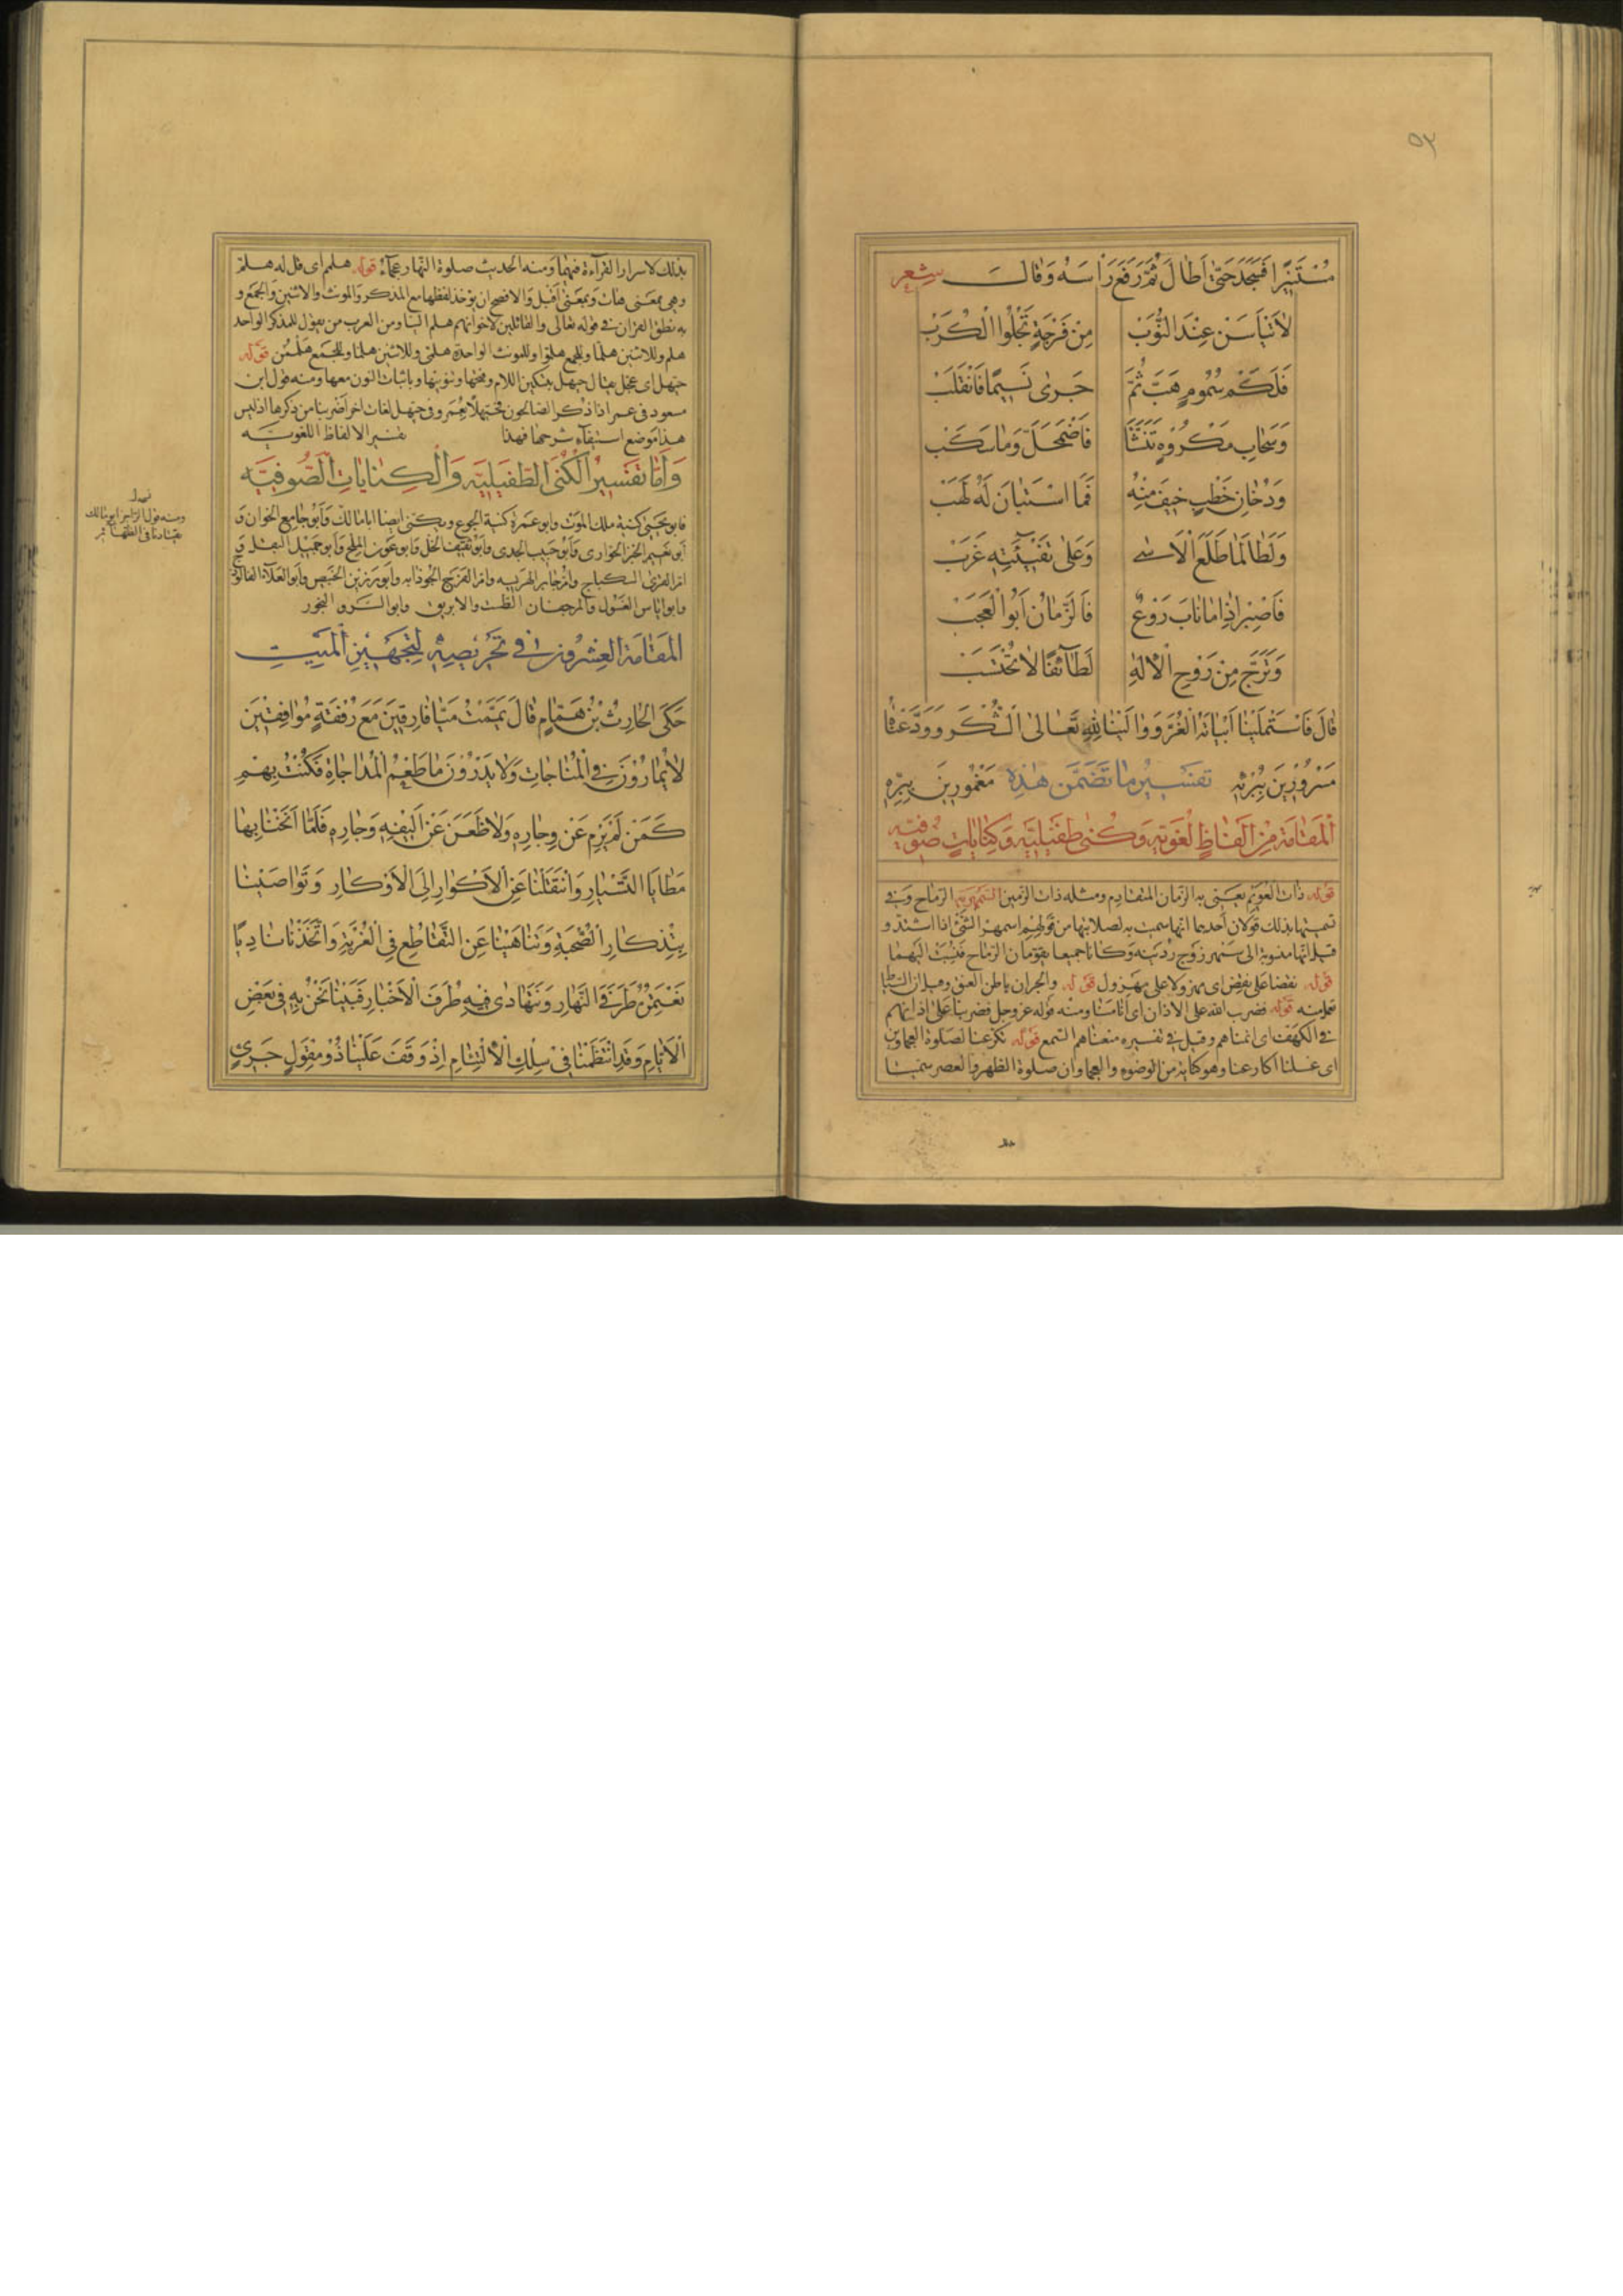 ٩٣
مُسْتَبْشِرًا فَسَجَدَ حَتّٰى اَطَالَ ثُمَّ رَفَعَ رَأْسَهُ وَقَالَ شعر
لَا تَيْأَسَنْ عِنْدَ النُّوَبْ مِنْ فَرْجَةٍ تَجْلُوا الْكُرَبْ
فَلَكَمْ سُمُومٍ هَبَّ ثُمَّ جَرٰى نَسِيمًا فَانْقَلَبْ
وَسَحَابِ مَكْرُوهٍ تَنَشَّا فَاضْمَحَلَّ وَمَا سَكَبْ
وَدُخَانِ خَطْبٍ خِيفَ مِنْهُ فَمَا اسْتَبَانَ لَهُ لَهَبْ
وَلَطَالَمَا طَلَعَ الْاَسٰى وَعَلٰى تَفِيئَتِهِ غَرَبْ
فَاصْبِرْ اِذَا مَا نَابَ رَوْعٌ فَالزَّمَانُ اَبُوا الْعَجَبْ
وَتَرَجَّ مِنْ رَوْحِ الْاِلٰهِ لَطَآئِفًا لَا تُحْتَسَبْ
قَالَ فَاسْتَمْلَيْنَا اَبْيَاتَهُ الْغُرَّ وَوَالَيْنَا لِلّٰهِ تَعَالٰى الشُّكْرَ وَوَدَّعْنَاهُ
مَسْرُورِينَ بِبُرْئِهِ تفسير ما تضمّن هذه مَغْمُورِينَ بِبِرِّهِ
المقامة من الفاظ لغوية وكنى طفيلية وكنايات صوفية
قوله ذات العويم يعنى به الزمان المتقادم ومثله ذات الزمين السمهرية الرماح وفى
تسميتها بذلك قولان احدهما انها سميت به لصلابتها من قولهم اسمهر الشئ اذا اشتد و
قيل انها منسوبة الى سمهر زوج ردينة وكانا جميعا يقومان الرماح فنسبت اليهما
قوله نقضا على نقض اى مهزولا على مهزول قوله والجران باطن العنق وقيل ان السياط
تعمل منه قوله فضرب الله على الاذان اى انامنا ومنه قوله عز وجل فضربنا على اذانهم
فى الكهف اى انمناهم وقيل فى تفسيره منعناهم السمع قوله تكرعنا لصلوة العجماوين
اى غسلنا اكارعنا وهو كناية من الوضوء والعجماوان صلوة الظهر والعصر سميتا
بذلك لاسرار القرآءة فيهما ومنه الحديث صلوة النهار عجمآء قوله هلمم اى قل له هلمّ
وهى بمعنى هات وبمعنى اقبل والافصح ان يوحّد لفظها مع المذكر والمونث والاثنين والجمع و
به نطق القران فى قوله تعالى والقائلين لاخوانهم هلم الينا ومن العرب من يقول للمذكر الواحد
هلم وللاثنين هلما وللجمع هلموا وللمونث الواحدة هلمى وللاثنين هلما وللجمع هلممن قوله
حيهل اى عجل يقال حيهل بتسكين اللام وفتحها وتنوينها وباثبات النون معها ومنه قول ابن
مسعود فى عمر اذا ذكر الصالحون فحيهلا بعمر وفى حيهل لغات اخر اضربنا من ذكرها اذ ليس
هذا موضع استيفآء شرحها فهذا تفسير الالفاظ اللغويّة
وَاَمَّا تَفْسِيرُ الْكُنَى الطُّفَيْلِيَّه وَالْكِنَايَاتِ الصُّوفِيَّه
فابو يحيى كنية ملك الموت وابو عمرة كنية الجوع ويكنى ايضا ابا مالك وابو جامع الخوان و
ابو نعيم الخبز الحوارى وابو حبيب الجدى وابو ثقيف الخل وابو عون الملح وابو جميل البقل و
ام القرى السكباج وام جابر الهريسه وام الفرج الجوذابه وابو رزين الخبيص وابو العلآء الفالوذ
وابو اياس الغسول والمرجفان الطست والابريق وابو السرو البخور
المقامة العشرون فى تحريضه لتجهيز الميت
حَكَى الْحَارِثُ بْنُ هَمَّامٍ قَالَ يَمَّمْتُ مَيَّافَارِقِينَ مَعَ رُفْقَةٍ مُوَافِقِينَ
لَا يُمَارُونَ فِى الْمُنَاجَاتِ وَلَا يَدْرُونَ مَا طَعْمُ الْمُدَاجَاةِ فَكُنْتُ بِهِمْ
كَمَنْ لَمْ يَرِمْ عَنْ وِجَارِهِ وَلَا ظَعَنَ عَنْ اَلِيفِهِ وَجَارِهِ فَلَمَّا اَنَخْنَا بِهَا
مَطَايَا التَّسْيَارِ وَانْتَقَلْنَا عَنِ الْاَكْوَارِ اِلَى الْاَوْكَارِ وَتَوَاصَيْنَا
بِتِذْكَارِ الصُّحْبَةِ وَتَنَاهَيْنَا عَنِ التَّقَاطُعِ فِى الْغُرْبَةِ وَاتَّخَذْنَا نَادِيًا
نَعْتَمِرُهُ طَرَفَىِ النَّهَارِ وَنَتَهَادٰى فِيهِ طُرَفَ الْاَخْبَارِ فَبَيْنَا نَحْنُ بِهِ فِى بَعْضِ
الْاَيَّامِ وَقَدِ انْتَظَمْنَا فِى سِلْكِ الْاِلْتِئَامِ اِذْ وَقَفَ عَلَيْنَا ذُو مِقْوَلٍ جَرِىٍّ
ومنه قول الراجز ابو مالك